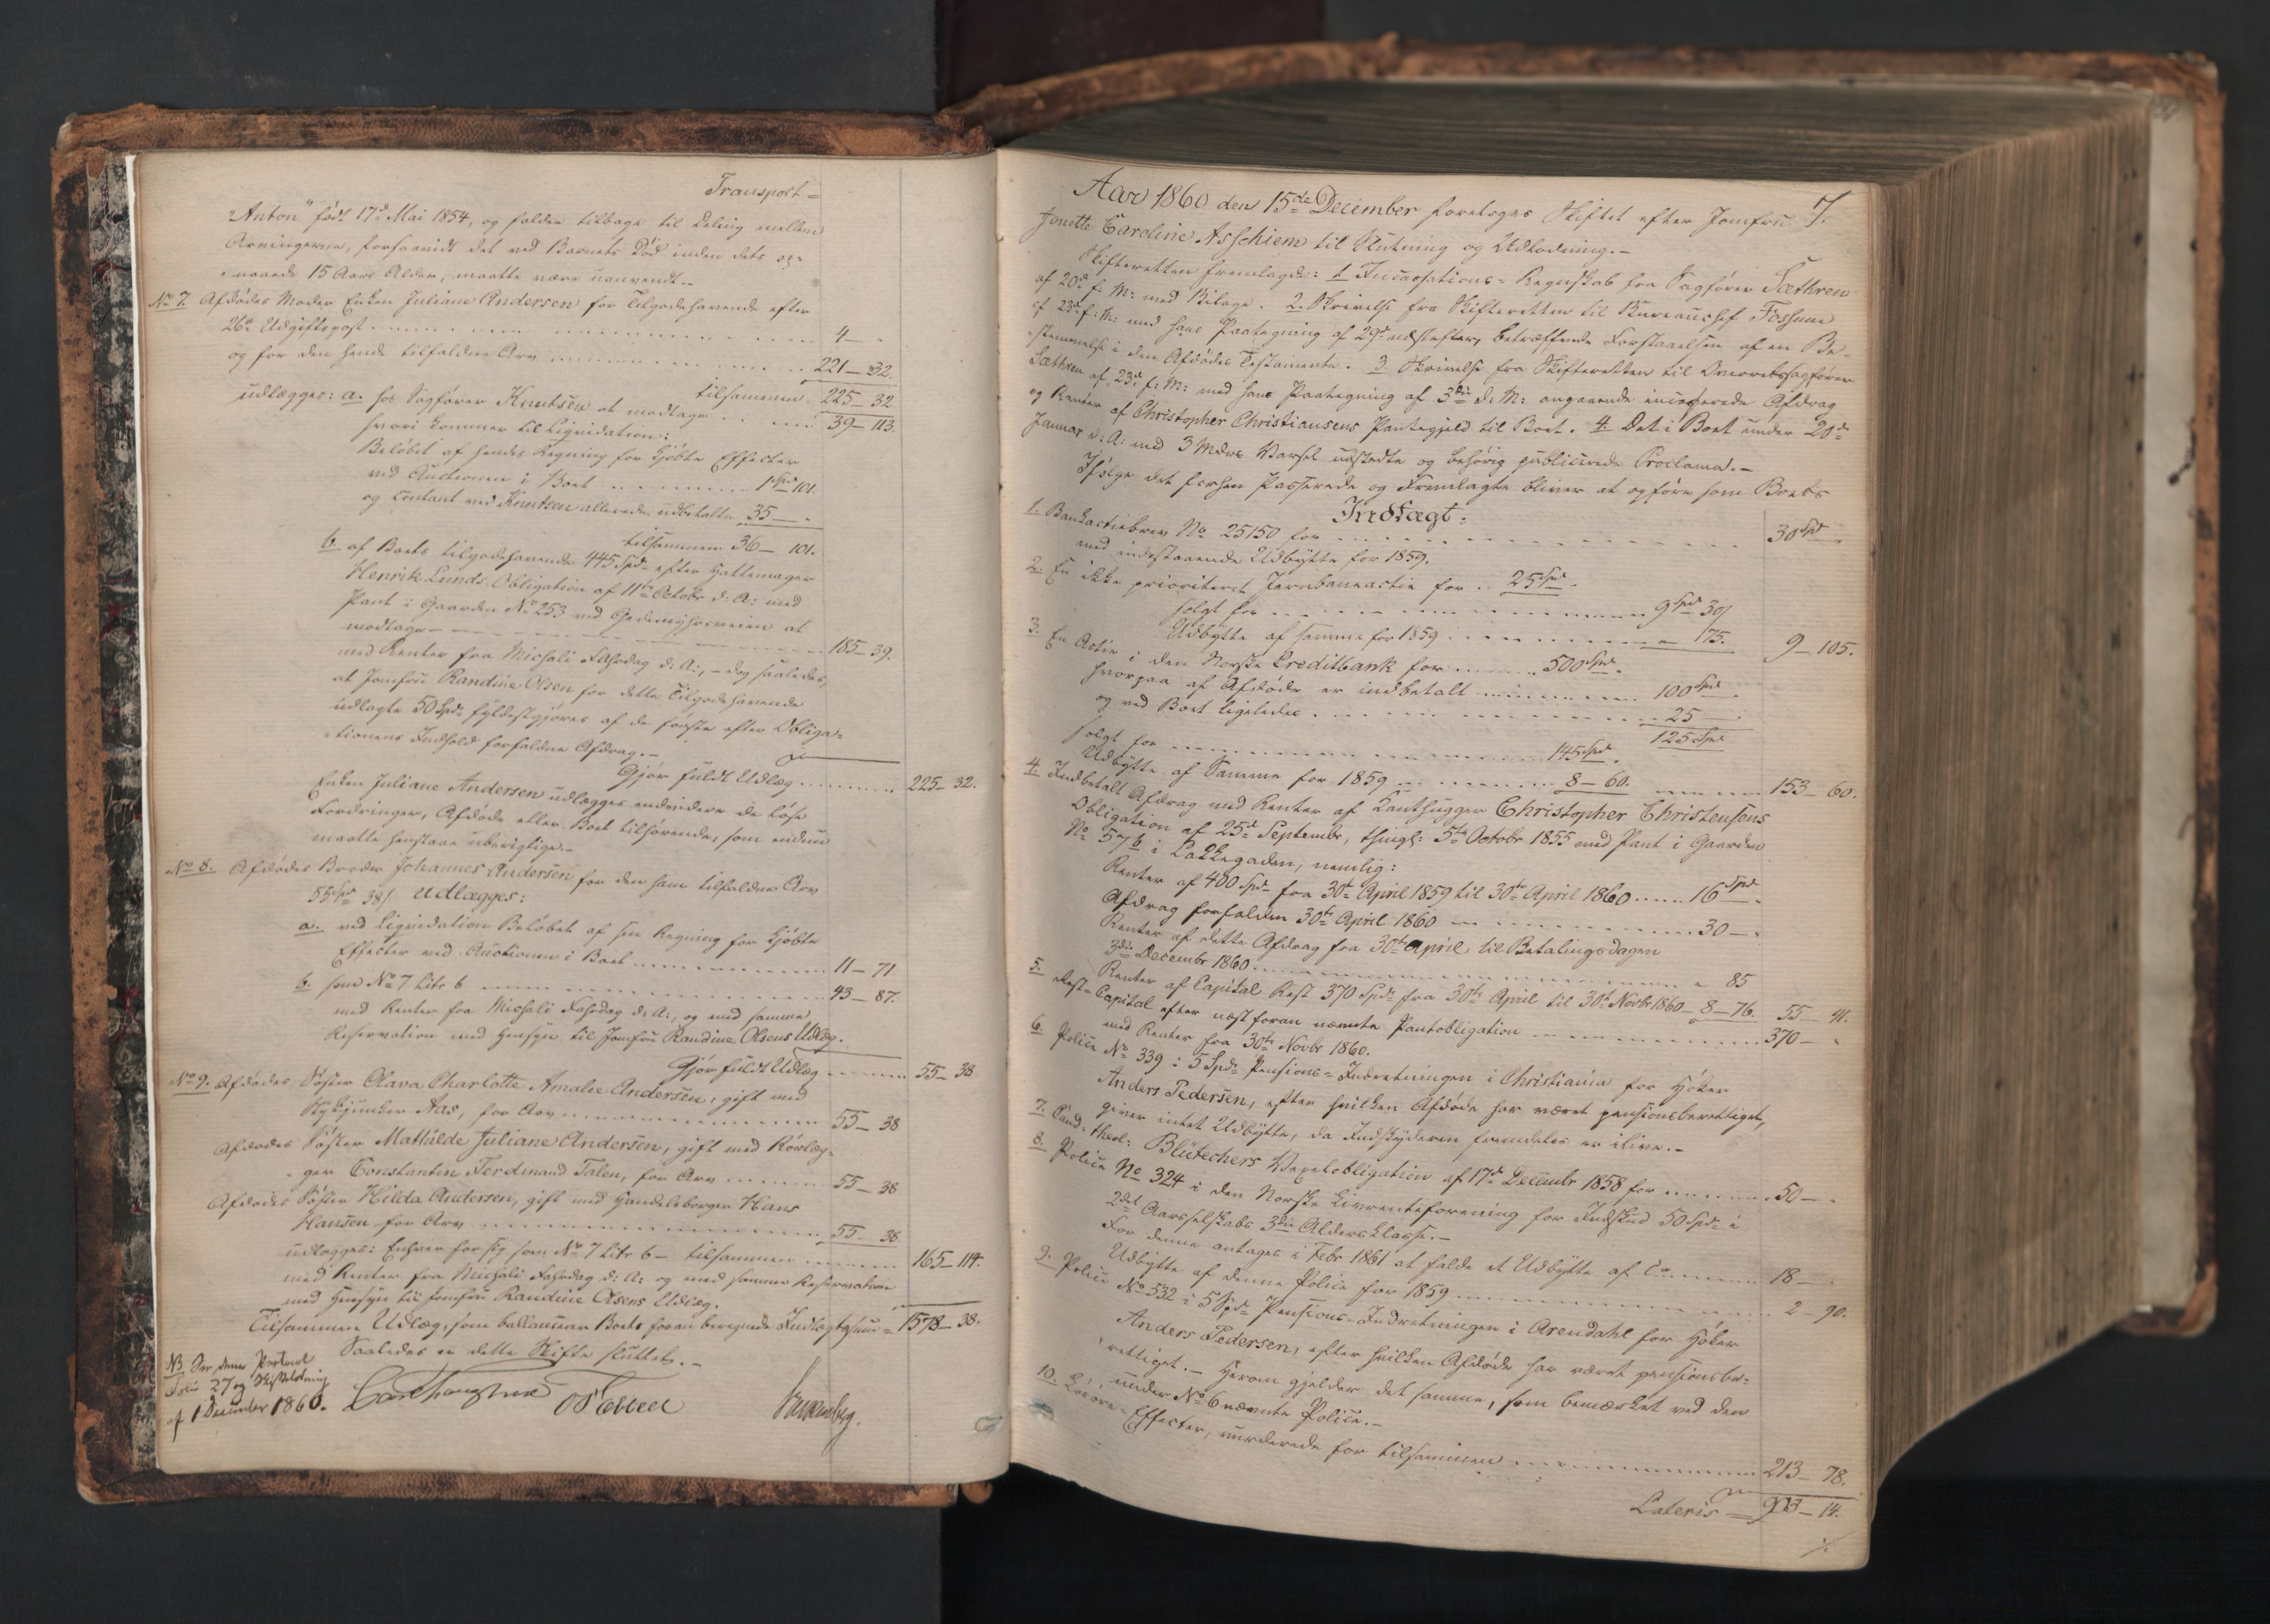 Transport =
"Anton" født 17de Mai 1854, og falder tilbage til Deling mellem
Arvingerne, forsaavidt det ved Barnets Død inden dets op-
naaede 15 Aars Alder, maatte være uanvendt.-
No 7. Afdødes Moder Enken Juliane Andersen for Tilgodehavende efter
26de Udgiftspost 4 - "
og for den hende tilfaldne Arv 221 - 32.
tilsammen 225 - 32
udlægges: a. hos Sagfører Knutsen at modtage 39 - 113.
hvori kommer til Liqvidation:
Beløbet af hendes Regning for kjøbte Effecter
ved Auctionen i Boet 1 Spd 101.
og contant ved Knutsen allerede udbetalte 35 - "
tilsammen 36 - 101.
b. af Boets tilgodehavende 445 Spd efter Hattemager
Henrik Lunds Obligation af 11te Octobr d: A: med
Pant i Gaarden No 253 ved Grdemyhrsveien at
modtage 185 - 39.
med Renter fra Michali Fahrdag d: A:, - dog saaledes,
at Jomfru Randine Olsen for dette Tilgodehavende
udlagte 50 Spd fyldestgjøres af de første efter Obliga-
tionens Indhold forfaldne Afdrag.-
Gjør fuldt Udlæg 225 - 32.
Enken Juliane Andersen udlægges endvidere de løse
Fordringer, Afdøde eller Boet tilhørende, som endnu
maatte henstaae uberigtige.-
No 8. Afdødes Broder Johannes Andersen for den ham tilfaldne Arv
55 Spd 38/ Udlægges:
a. ved Liqvidation Beløbet af sin Regning for kjøbte
Effecter ved Auctionen i Boet 11 - 71
b. som No 7 Litr b 43 - 87.
med Renter fra Michali Fahrdag d: A:, og med samme
Reservation med Hensyn til Jomfru Randine Olsens Udlæg.
Gjør fuldt Udlæg 55 - 38
No 9. Afdødes Søster Olava Charlotte Amalie Andersen, gift med
Aas, for Arv 55 - 38
Afdødes Søster Mathilde Juliane Andersen, gift med Rørlæg-
ger Constantin Ferdinand Talen, for Arv 55 - 38
Afdødes Søster Hilda Andersen, gift med Handelsborger Hans
Hansen for Arv 55 - 38
udlægges: Enhver for sig som No 7 Litr b - tilsammen 165 - 114.
med Renter fra Michali Fahrdag d: A: og med samme Reservation
med Hensyn til Jomfru Randine Olsens Udlæg.
Tilsammen Udlæg, som ballancerer Boets foran beregnede Indtægtssum = 1578 - 38.
Saaledes er dette Skifte sluttet.-
NB See denne Protocol
Folio 27 og
af 1 December 1860.
Aar 1860 den 15de December foretoges Skiftet efter Jomfru 7.
Jonette Caroline Asschiem til Slutning og Udlodning.-
Skifteretten fremlagde: 1 Incassations-Regnskab fra Sagfører Sæthren
af 20de f: M: med Bilage. 2. Skrivelse fra Skifteretten til Bureauchef Fossum
af 23de f: M: med hans Paategning af 29de næstefter, betræffende Forstaaelsen af en Be-
stemmelse i den Afdødes Testamente. 3. Skrivelse fra Skifteretten til Overretssagfører
Sæthren af 23de f: M: med hans Paategning af 3die d: M: angaaende incasserede Afdrag
og Renter af Christopher Christiansens Pantegjeld til Boet. 4. Det i Boet under 20de
Januar d: A: med 3 Mdrs Varsel udstedte og behørig publicerede Proclama.-
Ifølge det forhen Passerede og Fremlagte bliver at opføre som Boets
Indtægt:
1. Bankactiebrev No 25150 for 30 Spd
med indestaaende Udbytte for 1859.
2. En ikke prioriteret Jernbaneactie for 25 Spd.
solgt for 9 Spd 30/
Udbytte af samme for 1859 " 75. 9 - 105.
3. En Actie i den Norske Creditbank for 500 Spd.
hvorpaa af Afdøde er indbetalt 100 Spd.
og ved Boet ligeledes 25
125 Spd
solgt for 145 Spd.
Udbytte af Samme for 1859 8 - 60. 153 - 60.
4. Indbetalt Afdrag med Renter af Kanthugger Christopher Christensens
Obligation af 25de Septembr, thingl: 5te Octobr 1855 med Pant i Gaarden
No 57 b i Lakkegaden, nemlig:
Renter af 400 Spd fra 30te April 1859 til 30te April 1860 16 Spd.
Afdrag forfalden 30te April 1860 30 - "
Renter af dette Afdrag fra 30te April til Betalingsdagen
3die Decembr 1860 " 85
Renter af Capital Rest 370 Spd fra 30te April til 30te Novbr 1860 - 8 - 76. 55 - 41.
5. Rest-Capital efter næst foran nævnte Pantobligation 370 - "
med Renter fra 30te Novbr 1860.
6. Police No 339 i 5 Spd Pensions-Indretningen i Christiania for Høker
Anders Pedersen, efter hvilken Afdøde har været pensionsberettiget,
giver intet Udbytte, da Indskyderen fremdeles er ilive.-
7. Cand: theol: Blütechers Vexelobligation af 17de Decembr 1858 for 50 - "
8. Police No 324 i den Norske Livrenteforening for Indskud 50 Spd i
2det Aarsselskabs 3die Aldersklasse.-
For denne antages i Febr 1861 at falde et Udbytte af Ca 18 - "
Udbytte af denne Police for 1859 2 - 90.
9. Police No 532 i 5 Spd Pensions-Indretningen i Arendahl for Høker
Anders Pedersen, efter hvilken Afdøde har været pensionsbe-
rettiget.- Herom gjelder det samme, som bemærket ved den
under No 6 nævnte Police.-
10. Løsøre-Effecter, vurderede for tilsammen 213 - 78.
Lateris = 903 - 14.